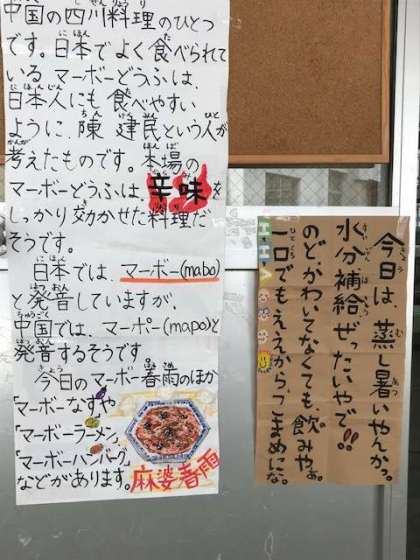 中国の四川料理のひとつ
です。日本でよく食べられて
いるマーボーどうふは、
日本人にも食べやすい
ように、陳建民という人が
考えたものです。本場の
マーボーどうふは、辛味を
しっかり効かせた料理だ
そうです。
日本では、マーボー(mabo)
と発音していますが、
中国では、マーポー(mapo)と
発音するそうです。
今日のマーボー春雨のほか
「マーボーなす」や
「マーボーラーメン」
「マーボーハンバーグ」
などがあります。
麻婆春雨
今日は、蒸し暑いやんかっ。
水分補給ぜったいやで!!
のど、かわいてなくても、飲みやぁ。
一口でもええから、こまめにな。